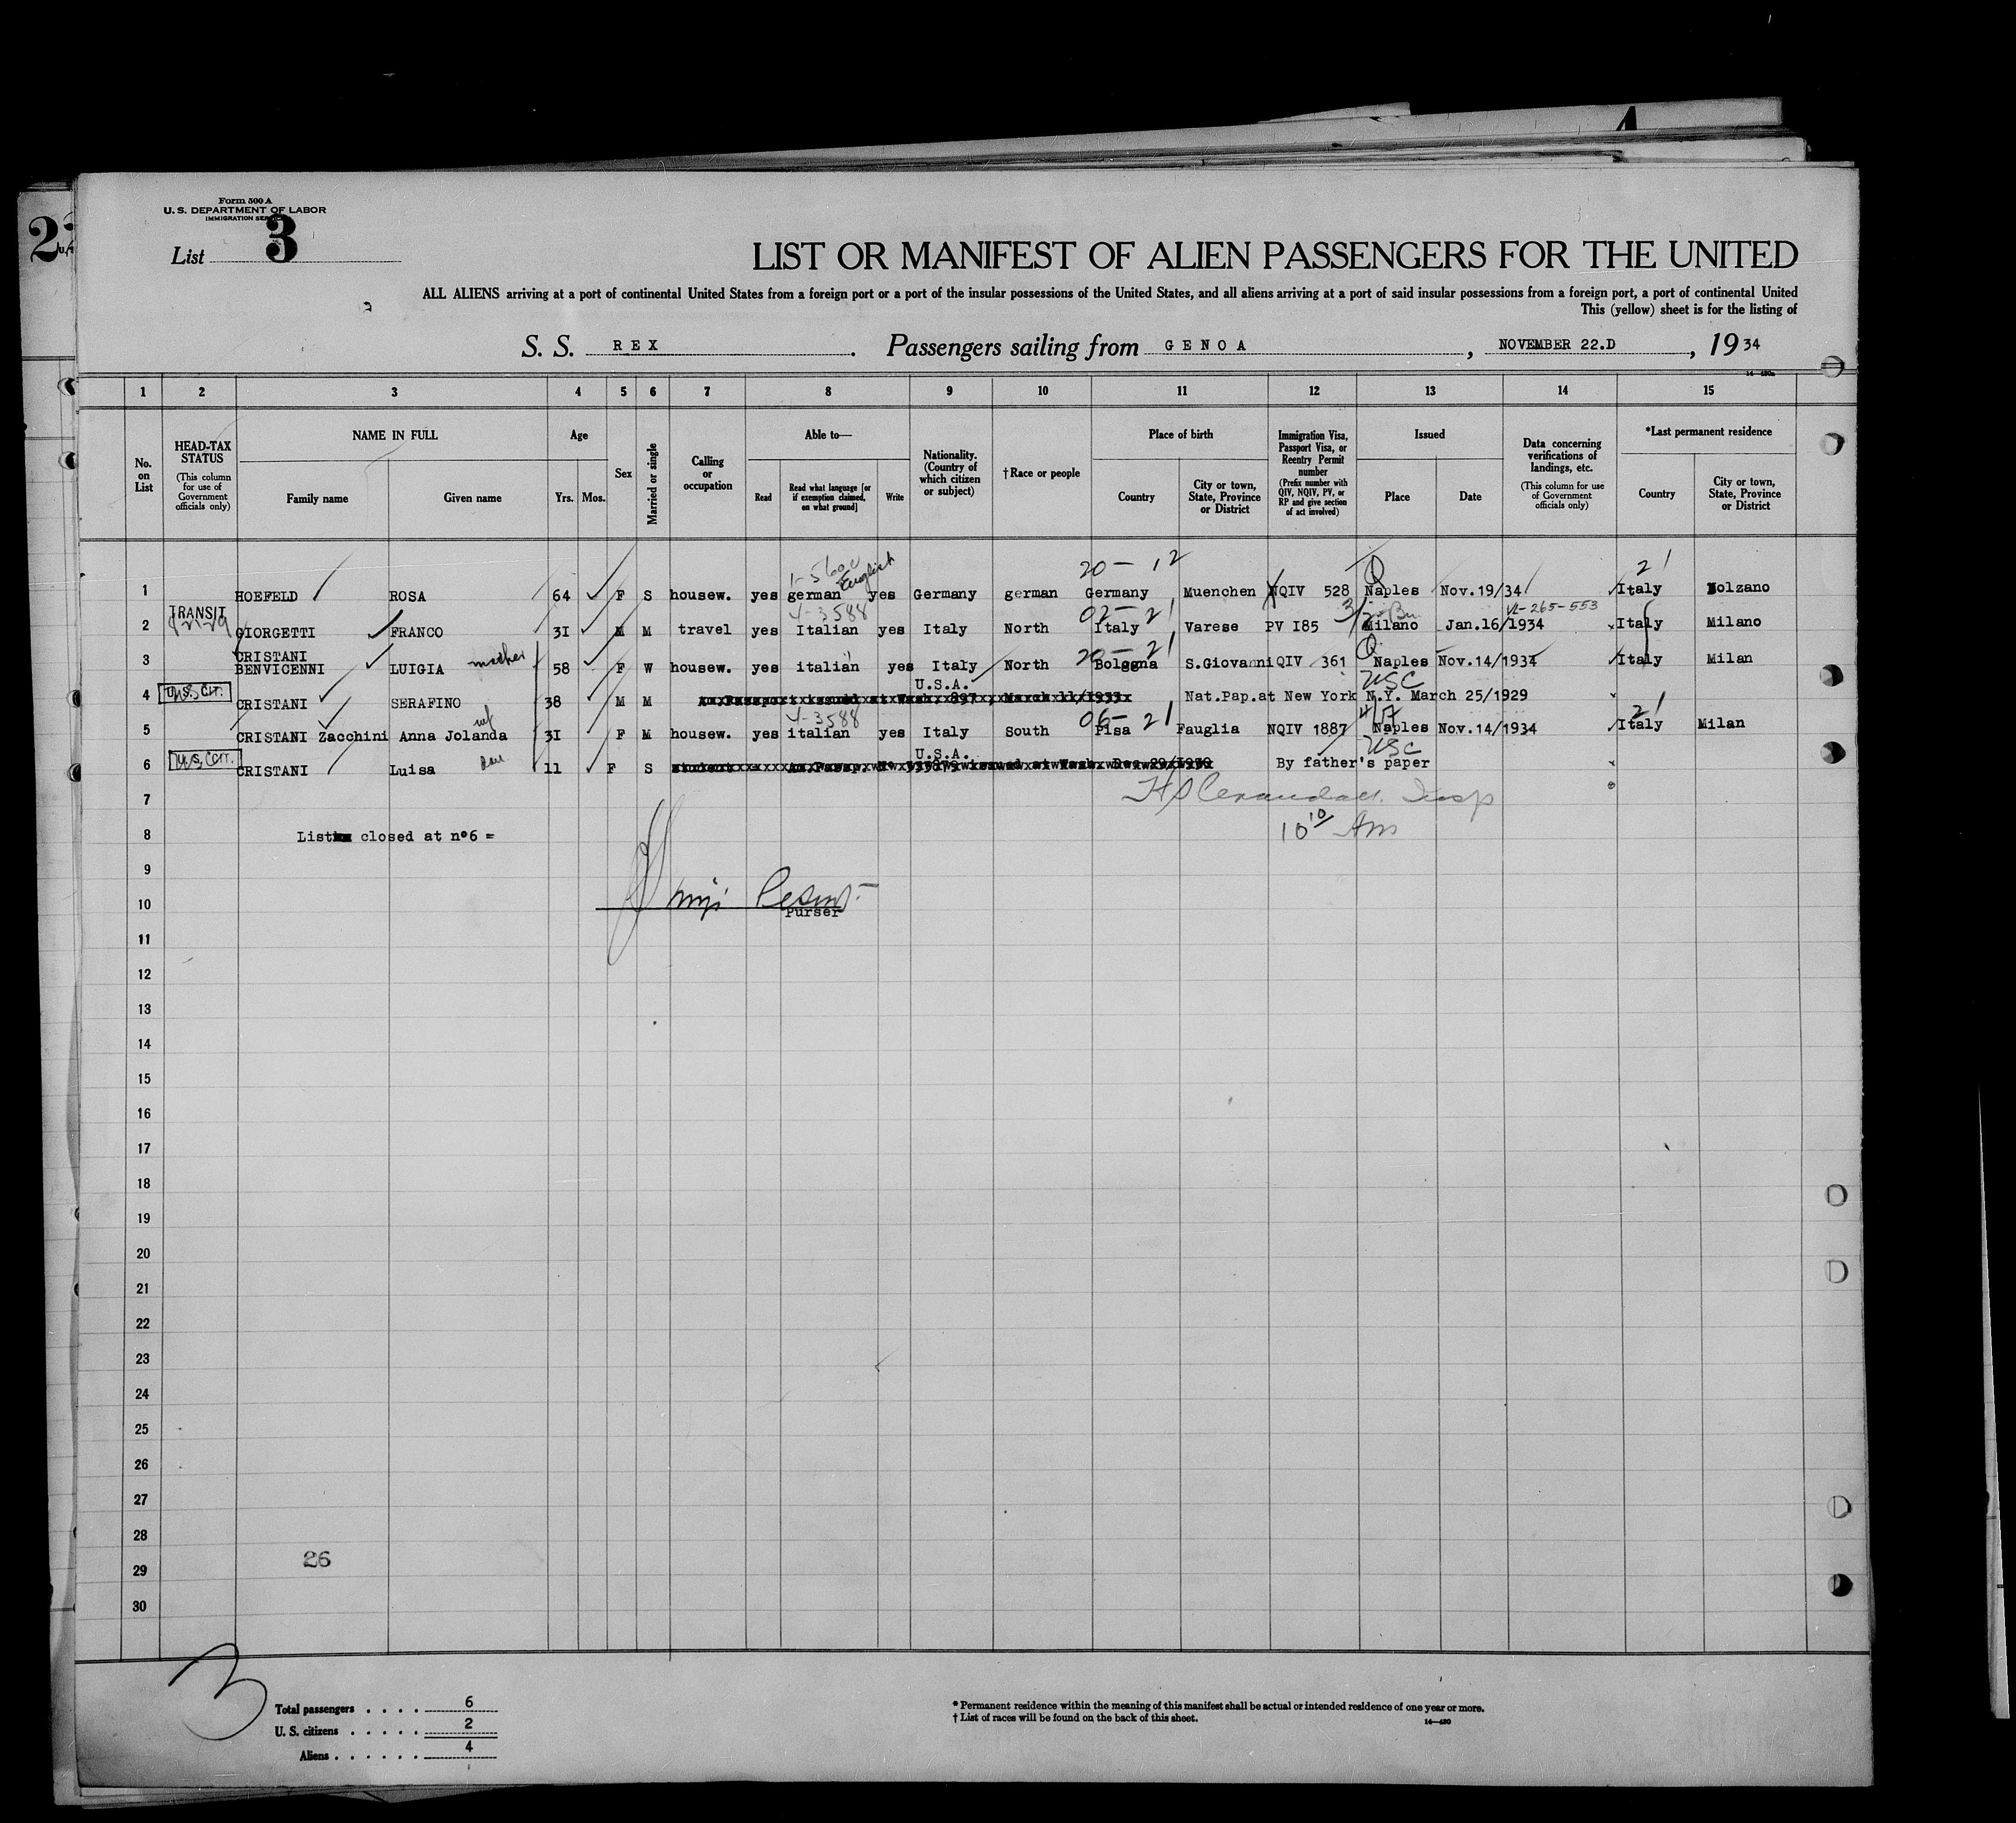 Form 500 A
U. S. DEPARTMENT OF LABOR
IMMIGRATION SERVICE
List 3
2
LIST OR MANIFEST OF ALIEN PASSENGERS FOR THE UNITED
ALL ALIENS arriving at a port of continental United States from a foreign port or a port of the insular possessions of the United States, and all aliens arriving at a port of said insular possessions from a foreign port, a port of continental United
This (yellow) sheet is for the listing of
S. S. REX. Passengers sailing from GENOA, NOVEMBER 22.D, 1934
1 2 3 4 5 6 7 8 9 10 11 12 13 14 15
No. on List
HEAD-TAX STATUS (This column for use of Government officials only)
NAME IN FULL
Family name Given name
Age
Yrs. Mos.
Sex
Married or single
Calling or occupation
Able to—
Read
Read what language [or if exemption claimed, on what ground]
Write
Nationality. (Country of which citizen or subject)
† Race or people
Place of birth
Country
City or town, State, Province or District
Immigration Visa, Passport Visa, or Reentry Permit number (Prefix number with QIV, NQIV, PV, or RP and give section of act involved)
Issued
Place Date
Data concerning verifications of landings, etc. (This column for use of Government officials only)
*Last permanent residence
Country
City or town, State, Province or District
English 20 - 12 2 1
1 HOEFELD ROSA 64 F S housew. yes german yes Germany german Germany Muenchen NQIV 528 Naples Nov.19/34 Italy Bolzano
TRANSIT 4-3588 02- 21
2 GIORGETTI FRANCO 31 M M travel yes Italian yes Italy North Italy Varese PV 185 Milano Jan.16/1934 Italy Milano
CRISTANI 20 - 21
3 BENVICENNI LUIGIA mother 58 F W housew. yes italian yes Italy North Bologna S.Giovanni QIV 361 Naples Nov.14/1934 Italy Milan
U.S. CIT. U.S.A. USC
4 CRISTANI SERAFINO 38 M M Nat.Pap.at New York N.Y. March 25/1929
4-3588 06- 21 21
5 CRISTANI Zacchini Anna Jolanda wf 31 F M housew. yes italian yes Italy South Pisa Fauglia NQIV 1887 Naples Nov.14/1934 Italy Milan
U.S. CIT. U.S.A. USC
6 CRISTANI Luisa 11 F S By father's paper
7
8 List closed at n°6 =
10 10 Am
9
10
Purser
11
12
13
14
15
16
17
18
19
20
21
22
23
24
25
26
27
28
26
29
30
3
Total passengers . . . . 6
U. S. citizens . . . . . 2
Aliens . . . . . . 4
* Permanent residence within the meaning of this manifest shall be actual or intended residence of one year or more.
† List of races will be found on the back of this sheet.
14—430